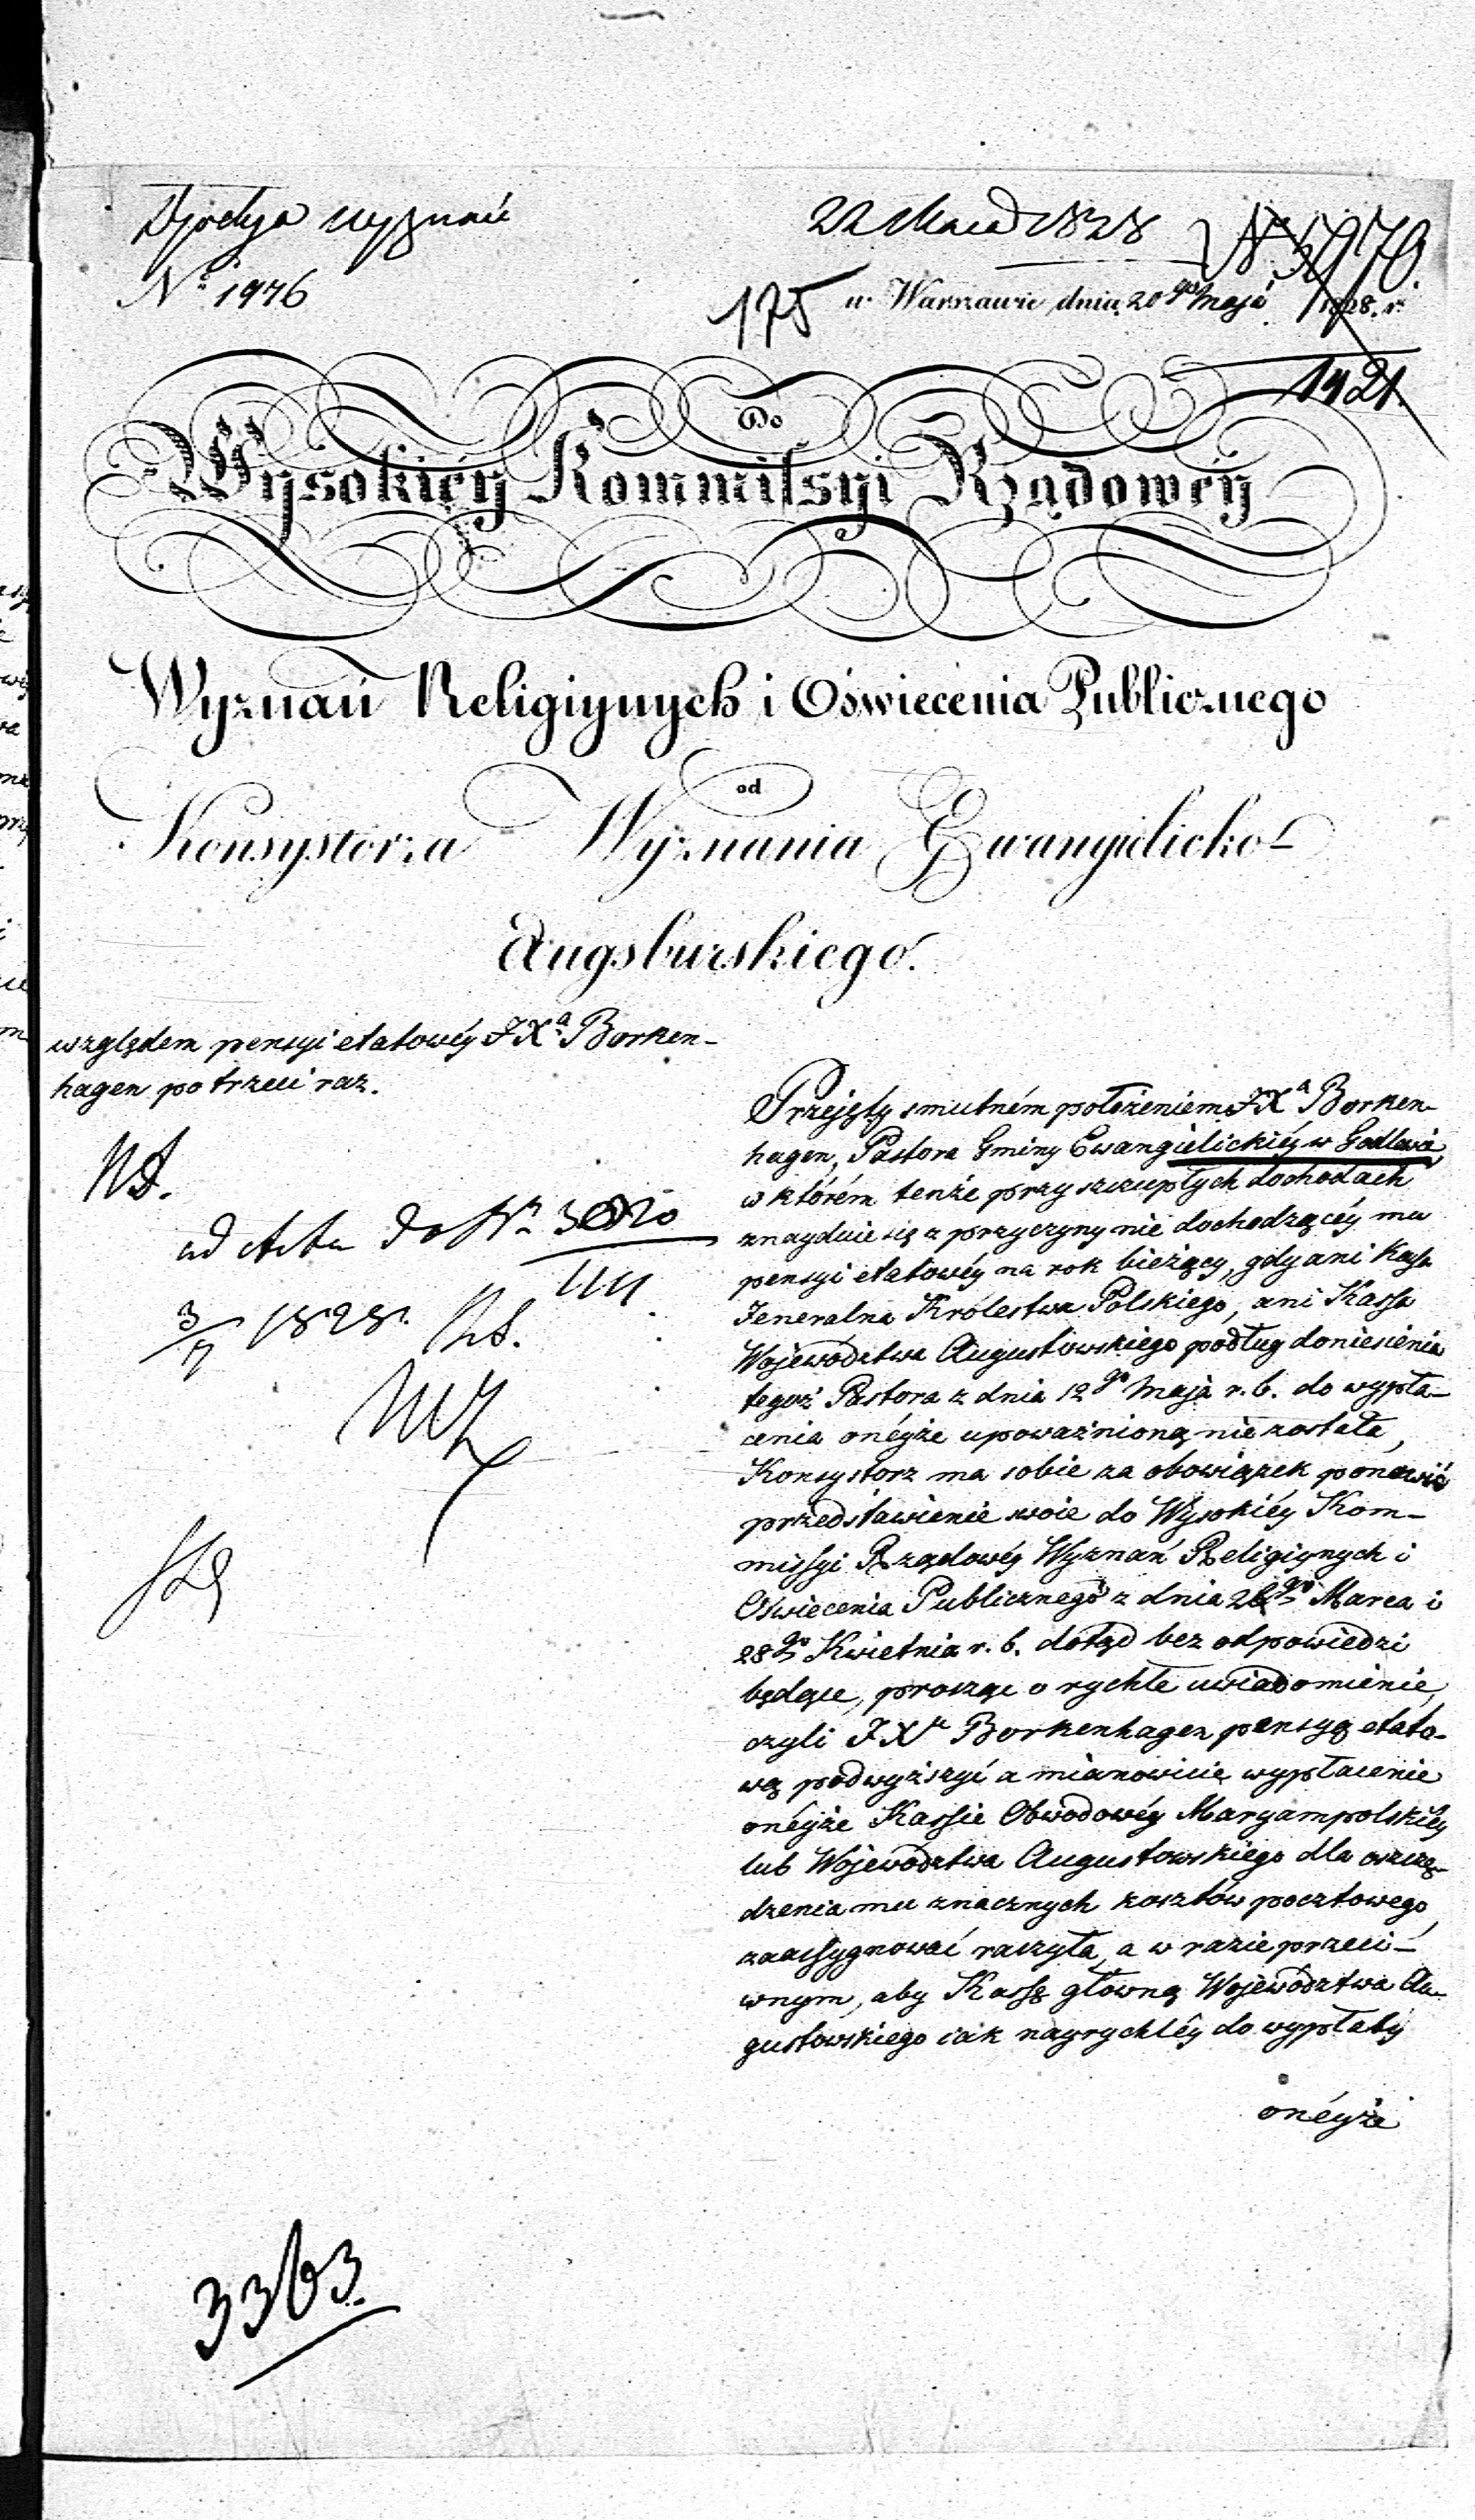 wyznań
22 Maia 1828
No 1976
175 w Warszawie dnia 20go Maja 1828. r.
1421.
Do
Wysokiéy Kommifsyi Rządowéy
Wyznań Religiynych i Oświecenia Publicznego
od
Konsystorza Wyznania Ewangielicko-
Augsburskiego.
względem pensyi etatowéy JXa Borken-
hagen po trzeci raz.
ad acta do Nr
3/7 1828.
3363
Przejęty smutném położeniem JXa Borken-
hagen, Pastora Gminy Ewangielickiéy w Godlewie,
w którém tenże przy szczupłych dochodach
znayduie się z przyczyny nie dochodzącéy mu
pensyi etatowéy na rok bieżący, gdy ani Kassa
Jeneralna Królestwa Polskiego, ani Kassa
Województwa Augustowskiego podług doniesienia
tegoż Pastora z dnia 12go Maja r. b. do wypła-
cenia onéyże upoważnioną nie została,
Konsystorz ma sobie za obowiązek ponowić
przedstawienie swoie do Wysokiéy Kom-
missyi Rządowéy Wyznań Religiynych i
Oświecenia Publicznego z dnia Marca i
28go Kwietnia r. b. dotąd bez odpowiedzi
będące, prosząc o rychłe uwiadomienie,
czyli JXu Borkenhagen pensyą etato-
wą podwyższyć a mianowicie wypłacenie
onéyże Kassie Obwodowéy Maryampolskiéy
lub Województwa Augustowskiego dla oszczę-
dzenia mu znacznych kosztów pocztowego,
zaassygnować raczyła, a w razie przeci-
wnym, aby Kassę główną Województwa Au-
gustowskiego iak nayrychléy do wypłaty
onéyże